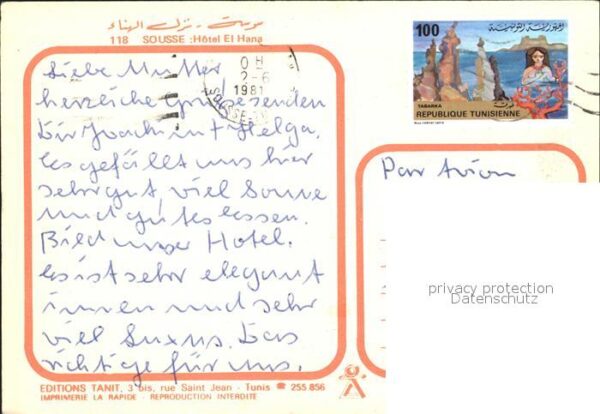 سوسة - نزل الهناء
118 SOUSSE : Hôtel El Hana
OH
2-6
1981
SOUSSE
100
الجمهورية التونسية
TABARKA طبرقة
REPUBLIQUE TUNISIENNE
Liebe Mutter
herzliche Grüße senden
Dir Joachim + Helga.
Es gefällt uns hier
sehr gut, viel Sonne
und gutes Essen.
Bild unser Hotel.
Es ist sehr elegant
innen und sehr
viel Luxus. Das
richtige für uns.
Par Avion
privacy protection
Datenschutz
EDITIONS TANIT, 3 bis, rue Saint Jean - Tunis ☎ 255 856
IMPRIMERIE LA RAPIDE - REPRODUCTION INTERDITE